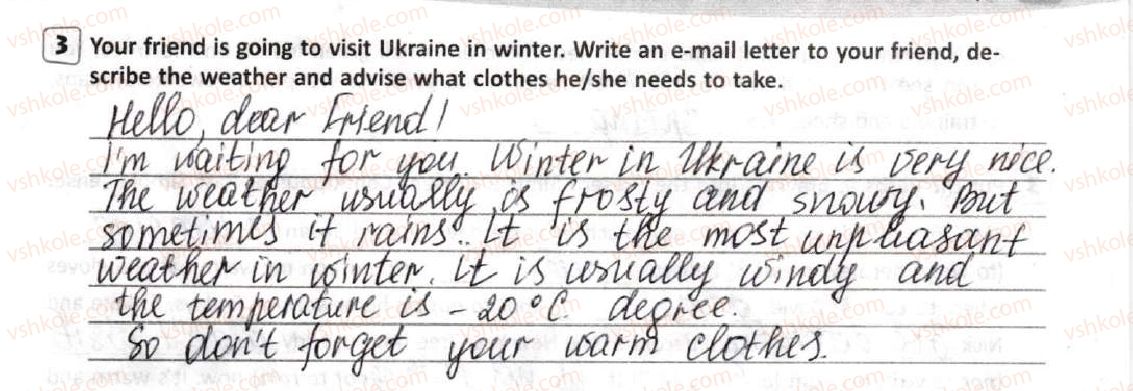 3 Your friend is going to visit Ukraine in winter. Write an e-mail letter to your friend, de-
scribe the weather and advise what clothes he/she needs to take.
Hello, dear friend!
I'm waiting for you. Winter in Ukraine is very nice.
The weather usually is frosty and snowy. But
sometimes it rains. It is the most unpleasant
weather in winter. It is usually windy and
the temperature is -20°C. degree.
So don't forget your warm clothes.